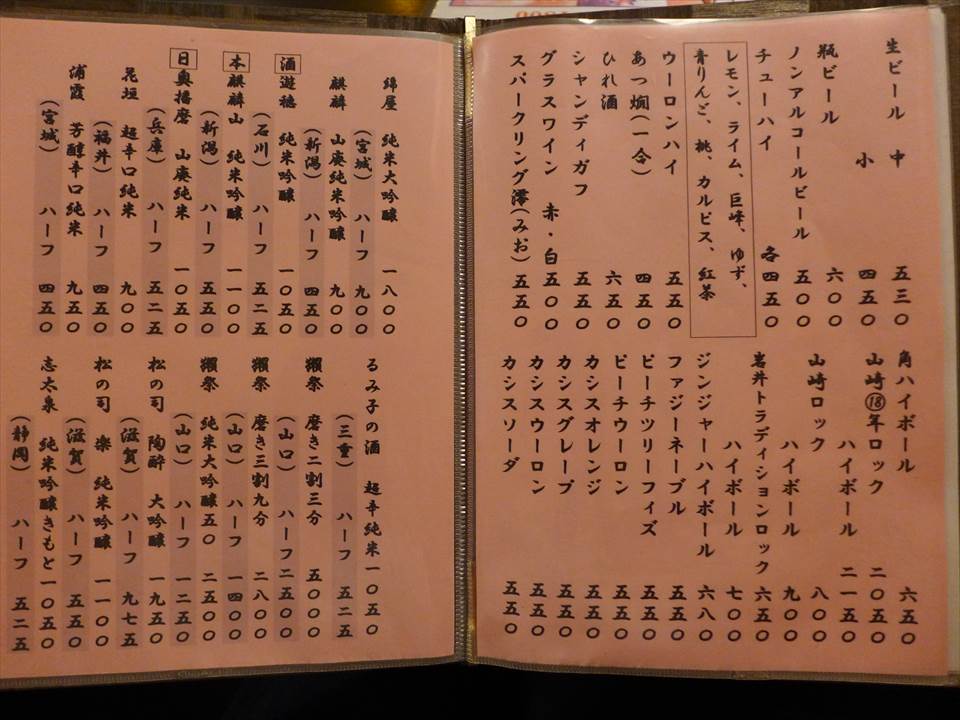 生ビール 中 五三〇
小 四五〇
瓶ビール 六〇〇
ノンアルコールビール 五〇〇
チューハイ 各四五〇
レモン、ライム、巨峰、ゆず、
青りんご、桃、カルピス、紅茶
ウーロンハイ 五五〇
あつ燗(一合) 四五〇
ひれ酒 六五〇
シャンディガフ 五五〇
グラスワイン 赤・白 五〇〇
スパークリング澪(みお) 五五〇
角ハイボール 六五〇
山崎⑱年ロック 二〇五〇
ハイボール 二一五〇
山崎ロック 八〇〇
ハイボール 九〇〇
岩井トラディションロック 六五〇
ハイボール 七〇〇
ジンジャーハイボール 六八〇
ファジーネーブル 五五〇
ピーチツリーフィズ 五五〇
ピーチウーロン 五五〇
カシスオレンジ 五五〇
カシスグレープ 五五〇
カシスウーロン 五五〇
カシスソーダ 五五〇
日本酒
綿屋 純米大吟醸 一八〇〇
(宮城) ハーフ 九〇〇
麒麟 山廃純米吟醸 九〇〇
(新潟) ハーフ 四五〇
遊穂 純米吟醸 一〇五〇
(石川) ハーフ 五二五
麒麟山 純米吟醸 一一〇〇
(新潟) ハーフ 五五〇
奥播磨 山廃純米 一〇五〇
(兵庫) ハーフ 五二五
花垣 超辛口純米 九〇〇
(福井) ハーフ 四五〇
浦霞 芳醇辛口純米 九五〇
(宮城) ハーフ 四五〇
るみ子の酒 超辛純米 一〇五〇
(三重) ハーフ 五二五
獺祭 磨き二割三分 五〇〇〇
(山口) ハーフ 二五〇〇
獺祭 磨き三割九分 二八〇〇
(山口) ハーフ 一四〇〇
獺祭 純米大吟醸五〇 二五〇〇
(山口) ハーフ 一二五〇
松の司 陶酔 大吟醸 一九五〇
(滋賀) ハーフ 九七五
松の司 楽 純米吟醸 一一〇〇
(滋賀) ハーフ 五五〇
志太泉 純米吟醸きもと 一〇五〇
(静岡) ハーフ 五二五